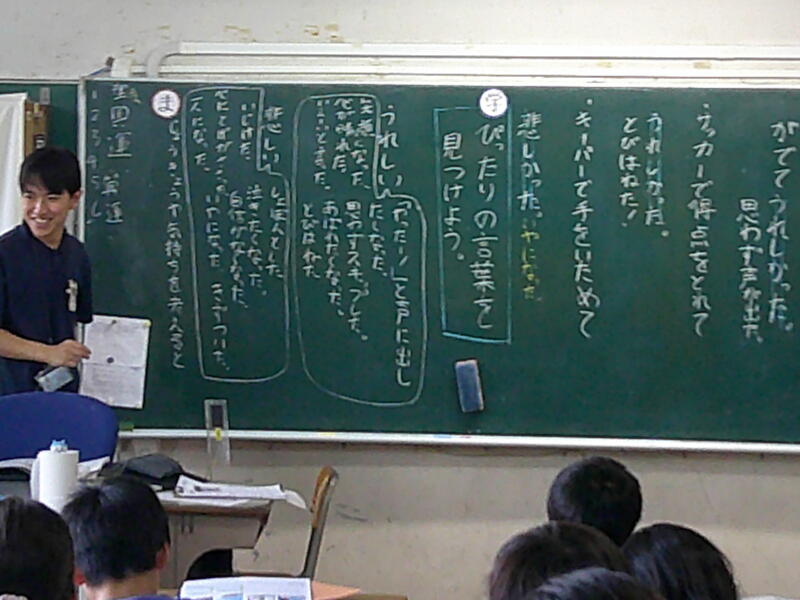 がでてうれしかった。
思わず声が出た。
・サッカーで得点をとれて
うれしかった。
とびはねた!
・キーパーで手をいためて
悲しかった。いやになった。
学
ぴったりの言葉を
見つけよう。
うれしい
「やったー!」と声に出し
たくなった。
笑顔になった。
思わずスキップした。
心が晴れた。
あばれたくなった。
とびはねた。
悲しい
しょぼんとした。
泣きたくなった。
いじけた。
自信がなくなった。
いやになった。
きずついた。
ま
気持ちを考えると
1
2
3
4
5